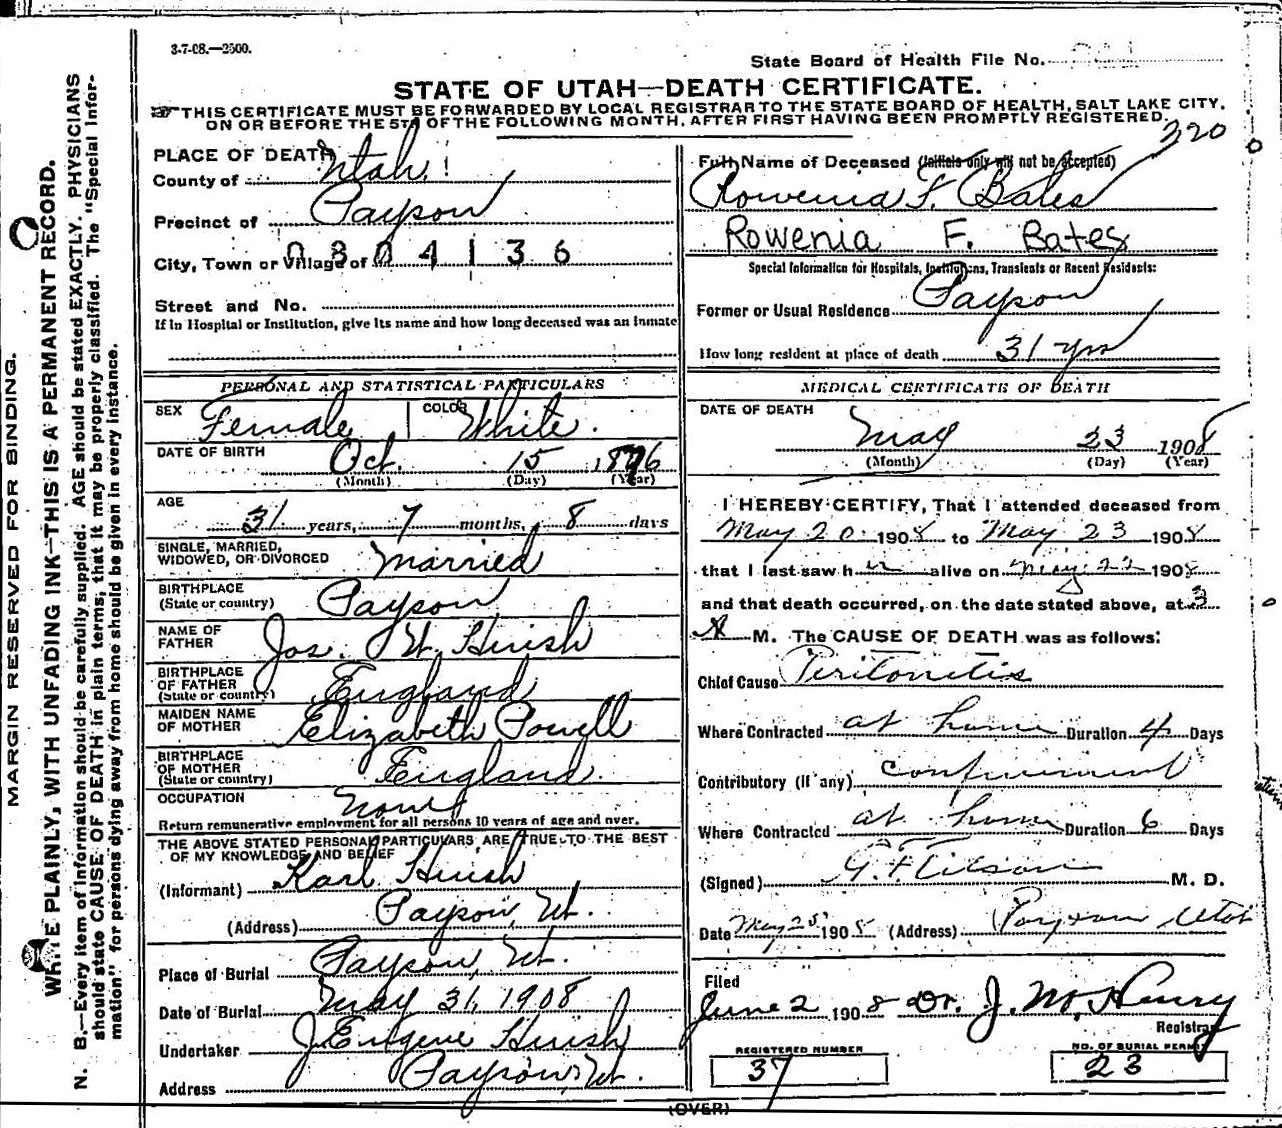 3-7-08.—2500.
State Board of Health File No.
STATE OF UTAH—DEATH CERTIFICATE.
THIS CERTIFICATE MUST BE FORWARDED BY LOCAL REGISTRAR TO THE STATE BOARD OF HEALTH, SALT LAKE CITY,
ON OR BEFORE THE 5TH OF THE FOLLOWING MONTH, AFTER FIRST HAVING BEEN PROMPTLY REGISTERED.
320
PLACE OF DEATH
County of Utah
Precinct of Payson
City, Town or Village of 0804136
Street and No.
If in Hospital or Institution, give its name and how long deceased was an inmate
Full Name of Deceased (Initials only will not be accepted)
Rowenia F. Bates
Rowenia F. Bates
Special Information for Hospitals, Institutions, Transients or Recent Residents:
Former or Usual Residence Payson
How long resident at place of death 31 yrs
PERSONAL AND STATISTICAL PARTICULARS
SEX Female COLOR White.
DATE OF BIRTH Oct. 15 1876
(Month) (Day) (Year)
AGE
31 years, 7 months, 8 days
SINGLE, MARRIED,
WIDOWED, OR DIVORCED Married
BIRTHPLACE
(State or country) Payson
NAME OF
FATHER Jos. W. Huish
BIRTHPLACE
OF FATHER
(State or country) England
MAIDEN NAME
OF MOTHER Elizabeth Powell
BIRTHPLACE
OF MOTHER
(State or country) England.
OCCUPATION None
Return remunerative employment for all persons 10 years of age and over.
THE ABOVE STATED PERSONAL PARTICULARS ARE TRUE TO THE BEST
OF MY KNOWLEDGE AND BELIEF
(Informant) Karl Huish
(Address) Payson, Ut.
Place of Burial Payson, Ut.
Date of Burial May 31, 1908
Undertaker J Eugene Huish
Address Payson, Ut.
MEDICAL CERTIFICATE OF DEATH
DATE OF DEATH
May 23 1908
(Month) (Day) (Year)
I HEREBY CERTIFY, That I attended deceased from
May 20 1908 to May 23 1908
that I last saw her alive on May 22 1908
and that death occurred, on the date stated above, at 3
A M. The CAUSE OF DEATH was as follows:
Chief Cause Peritonitis
Where Contracted at home Duration 4 Days
Contributory (if any) confinement
Where Contracted at home Duration 6 Days
(Signed) M. D.
Date May 25 1908 (Address) Payson Utah
Filed
June 2 1908 Dr. J. M. Henry
Registrar
REGISTERED NUMBER
37
NO. OF BURIAL PERMIT
23
(OVER)
MARGIN RESERVED FOR BINDING.
WRITE PLAINLY, WITH UNFADING INK—THIS IS A PERMANENT RECORD.
N. B.—Every item of information should be carefully supplied. AGE should be stated EXACTLY. PHYSICIANS
should state CAUSE OF DEATH in plain terms, that it may be properly classified. The "Special Infor-
mation" for persons dying away from home should be given in every instance.